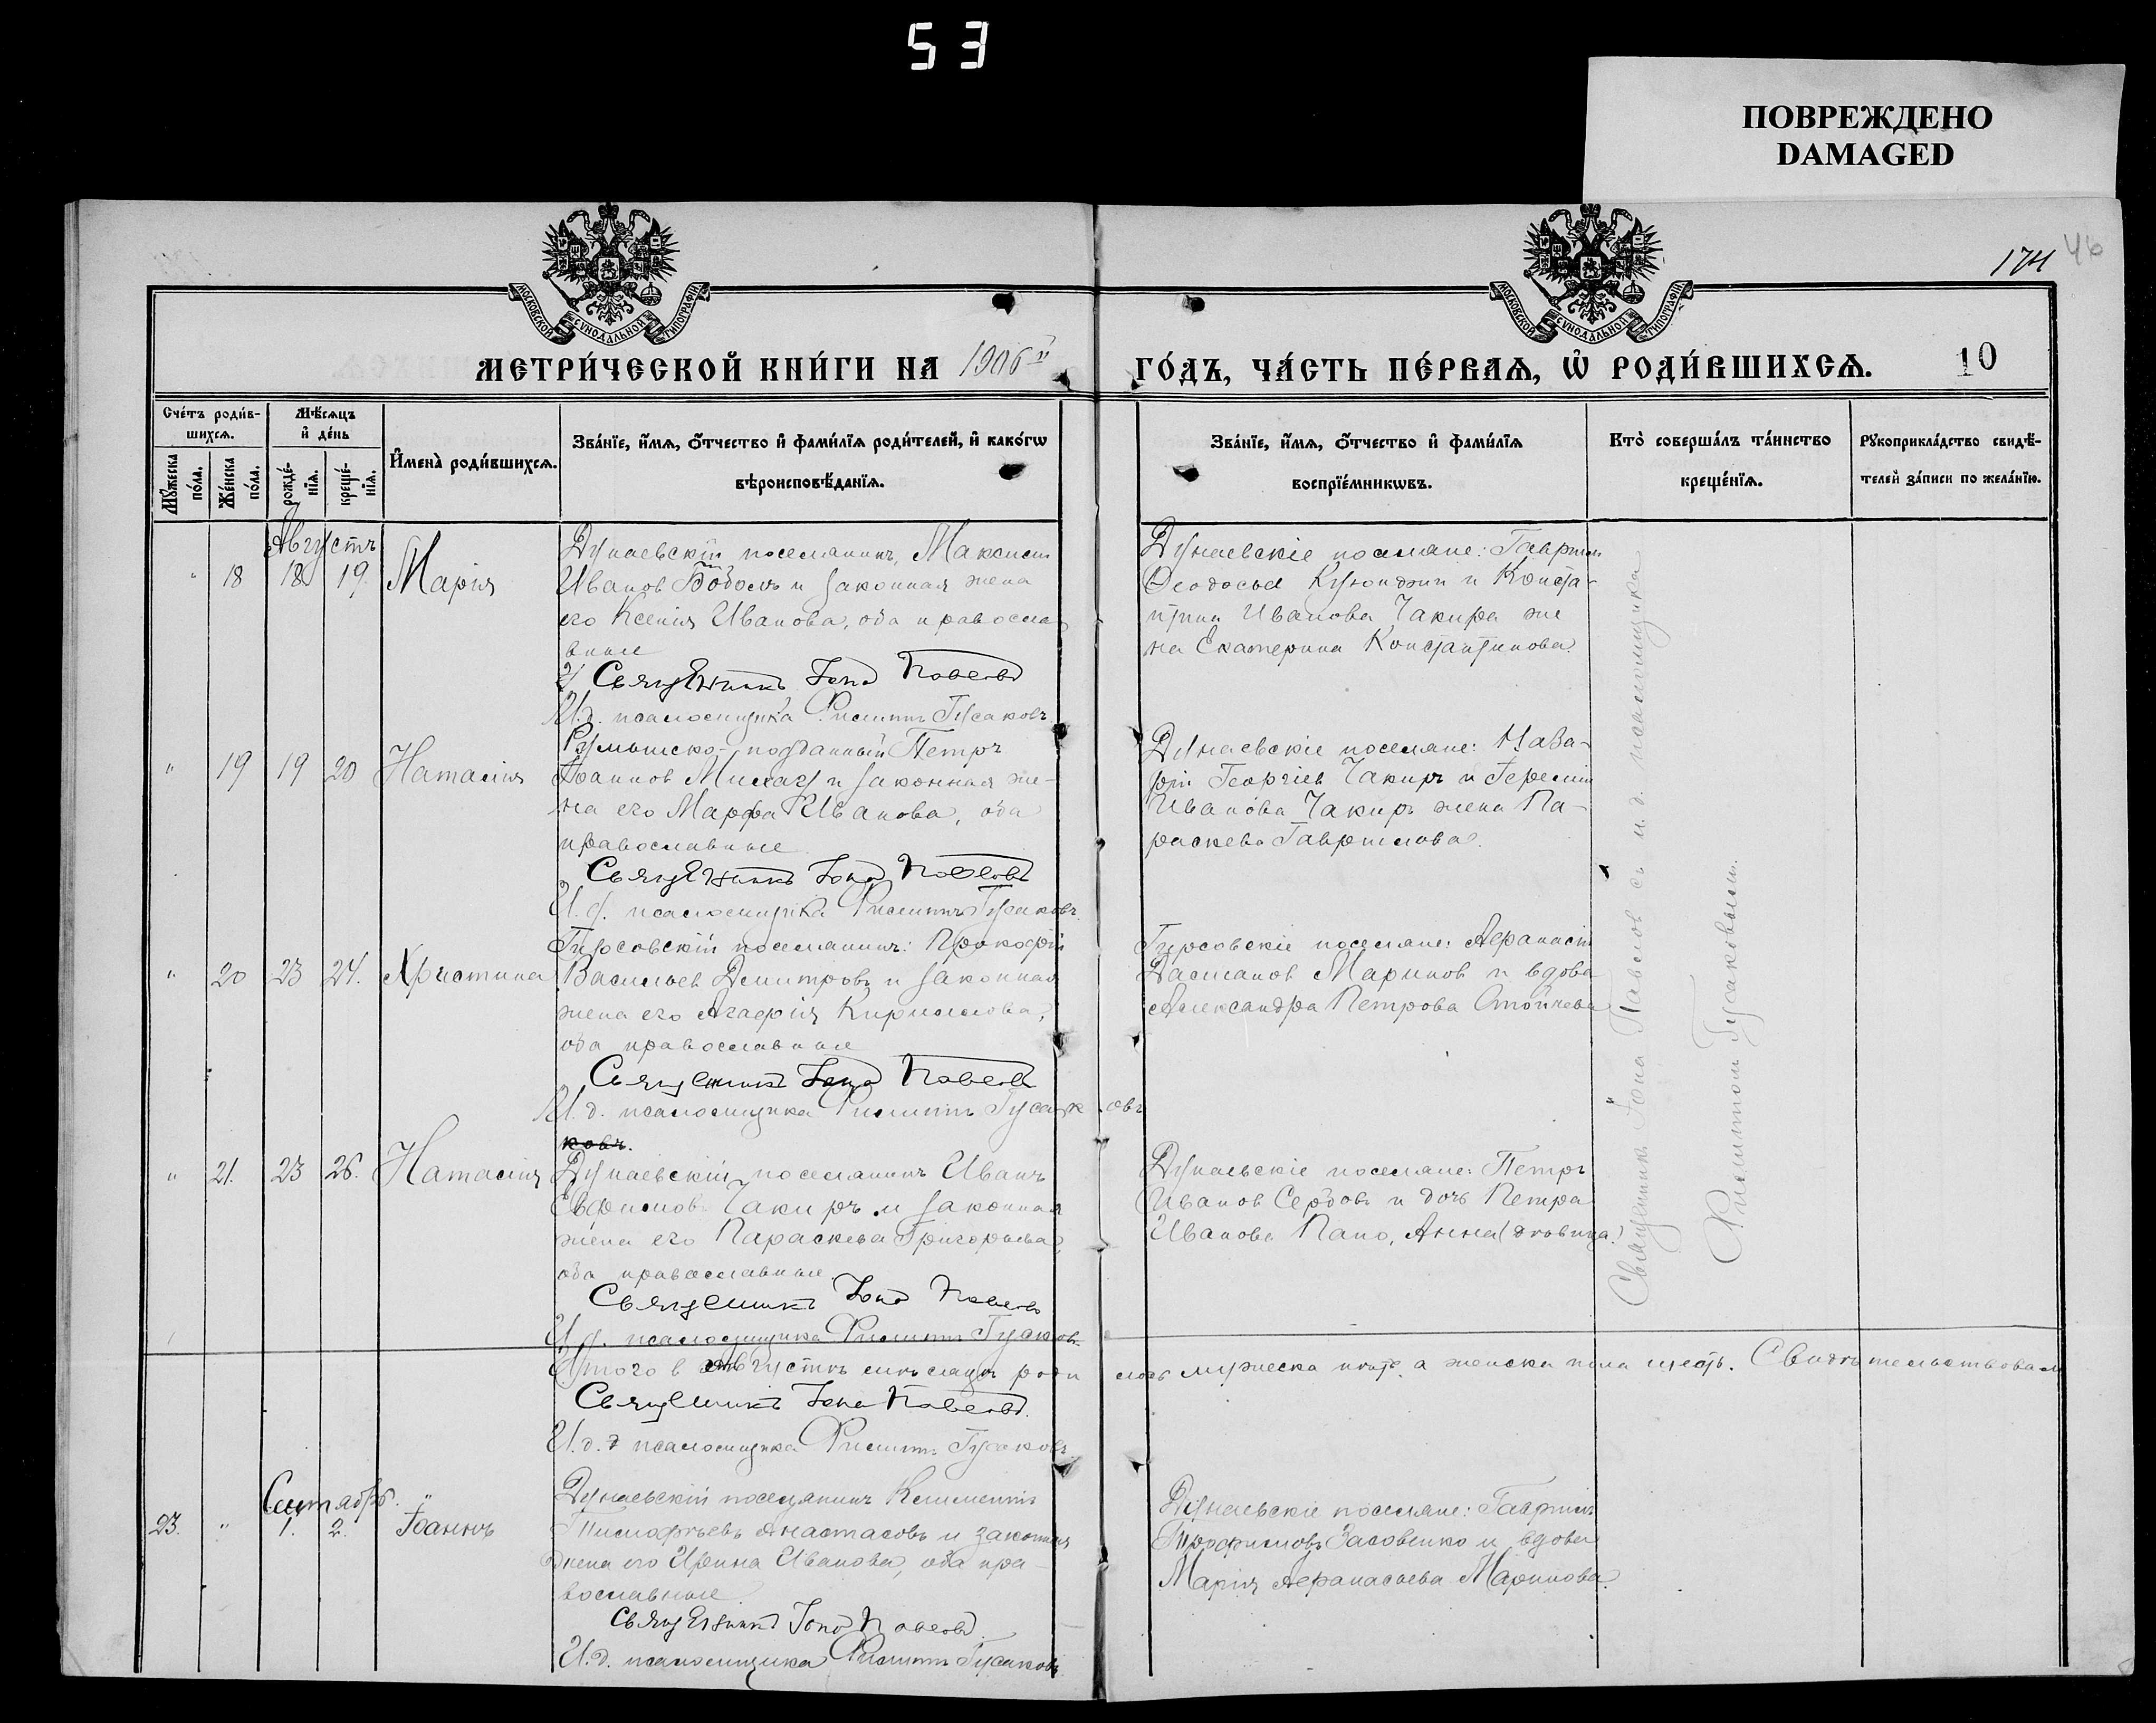 53
ПОВРЕЖДЕНО
DAMAGED
174 46
МОСКОВСКОЙ СѴНОДАЛЬНОЙ ТИПОГРАФІИ
МОСКОВСКОЙ СѴНОДАЛЬНОЙ ТИПОГРАФІИ
МЕТРИ́ЧЕСКОЙ КНИ́ГИ НА 1906 й ГО́ДЪ, ЧА́СТЬ ПЕ́РВАЯ, Ѡ҆ РОДИ́ВШИХСЯ. 10
Сче́тъ роди́в-
шихся.
Мѣ́сяцъ
и҆ де́нь
Мꙋ́жеска
по́ла.
Же́нска
по́ла.
рожде́-
нїя.
креще́-
нїя.
И҆мена̀ роди́вшихся.
Зва́нїе, и҆́мя, ѻ҆́тчество и҆ фами́лїя роди́телей, и҆ како́гѡ
вѣроисповѣ́данїя.
Зва́нїе, и҆́мя, ѻ҆́тчество и҆ фами́лїя
воспрїе́мникѡвъ.
Кто̀ соверша́лъ та́инство
креще́нїя.
Рꙋкоприкла́дство свидѣ́-
телей за́писи по жела́нїю.
Августъ
" 18 18 19. Марія
Дунаевскій поселянинъ, Максим
Иванов Бодом и законная жена
его Ксенія Иванова, оба правосла
вные
Священникъ Іона Павловъ
И.д. псаломщика Филиппъ Гусаковъ.
Дунаевскіе поселяне: Гавриил
Феодосьев Куюнджи и Конста-
нтин Иванова Чакира же
на Екатерина Константинова.
" 19 19 20 Наталія
Румынско-подданный Петръ
Іоаннов Михаз и законная же-
на его Марфа Иванова, оба
православные
Священникъ Іона Павловъ
И.д. псаломщика Филиппъ Гусаковъ.
Дунаевскіе поселяне: Наза-
рій Георгіев Чакиръ и Геремій
Иванова Чакиръ жена Па-
раскева Гаврилова.
" 20 23 24. Христина
Гирсовскій поселянинъ: Прокофій
Васильев Димитровъ и законная
жена его Агафія Кириллова,
оба православные
Священникъ Іона Павловъ
И.д. псаломщика Филиппъ Гусаковъ
ковъ.
Гирсовскіе поселяне: Афанасій
Маринов и вдова
Александра Петрова Стойчева
" 21. 23 26. Наталія
Дунаевскій поселянинъ Иванъ
Евфимов Чакиръ и законная
жена его Параскева Григорьева,
оба православные.
Священникъ Іона Павловъ
И.д. псаломщика Филиппъ Гусаковъ
Дунаевскіе поселяне: Петръ
Иванов Сербов и дочь Петра
Иванова Папо, Анна (
Священникъ Іона Павловъ съ и.д. псаломщика
Филиппом Гусаковымъ.
Итого в августѣ мѣсяцѣ родилось мужеска пять, а женска пола шесть. Свидѣтельствовали
Священникъ Іона Павловъ.
И.д. псаломщика Филиппъ Гусаковъ
Сентябрь.
23. " 1. 2. Іоаннъ
Дунаевскій поселянинъ Климентій
Тимофѣевъ Анастасовъ и законная
жена его Ирина Иванова, оба пра-
вославные
Священникъ Іона Павловъ.
И.д. псаломщика Филиппъ Гусаковъ
Дунаевскіе поселяне: Гавриилъ
Трофимовъ Засовенко и вдова
Марія Афанасьева Маринова.